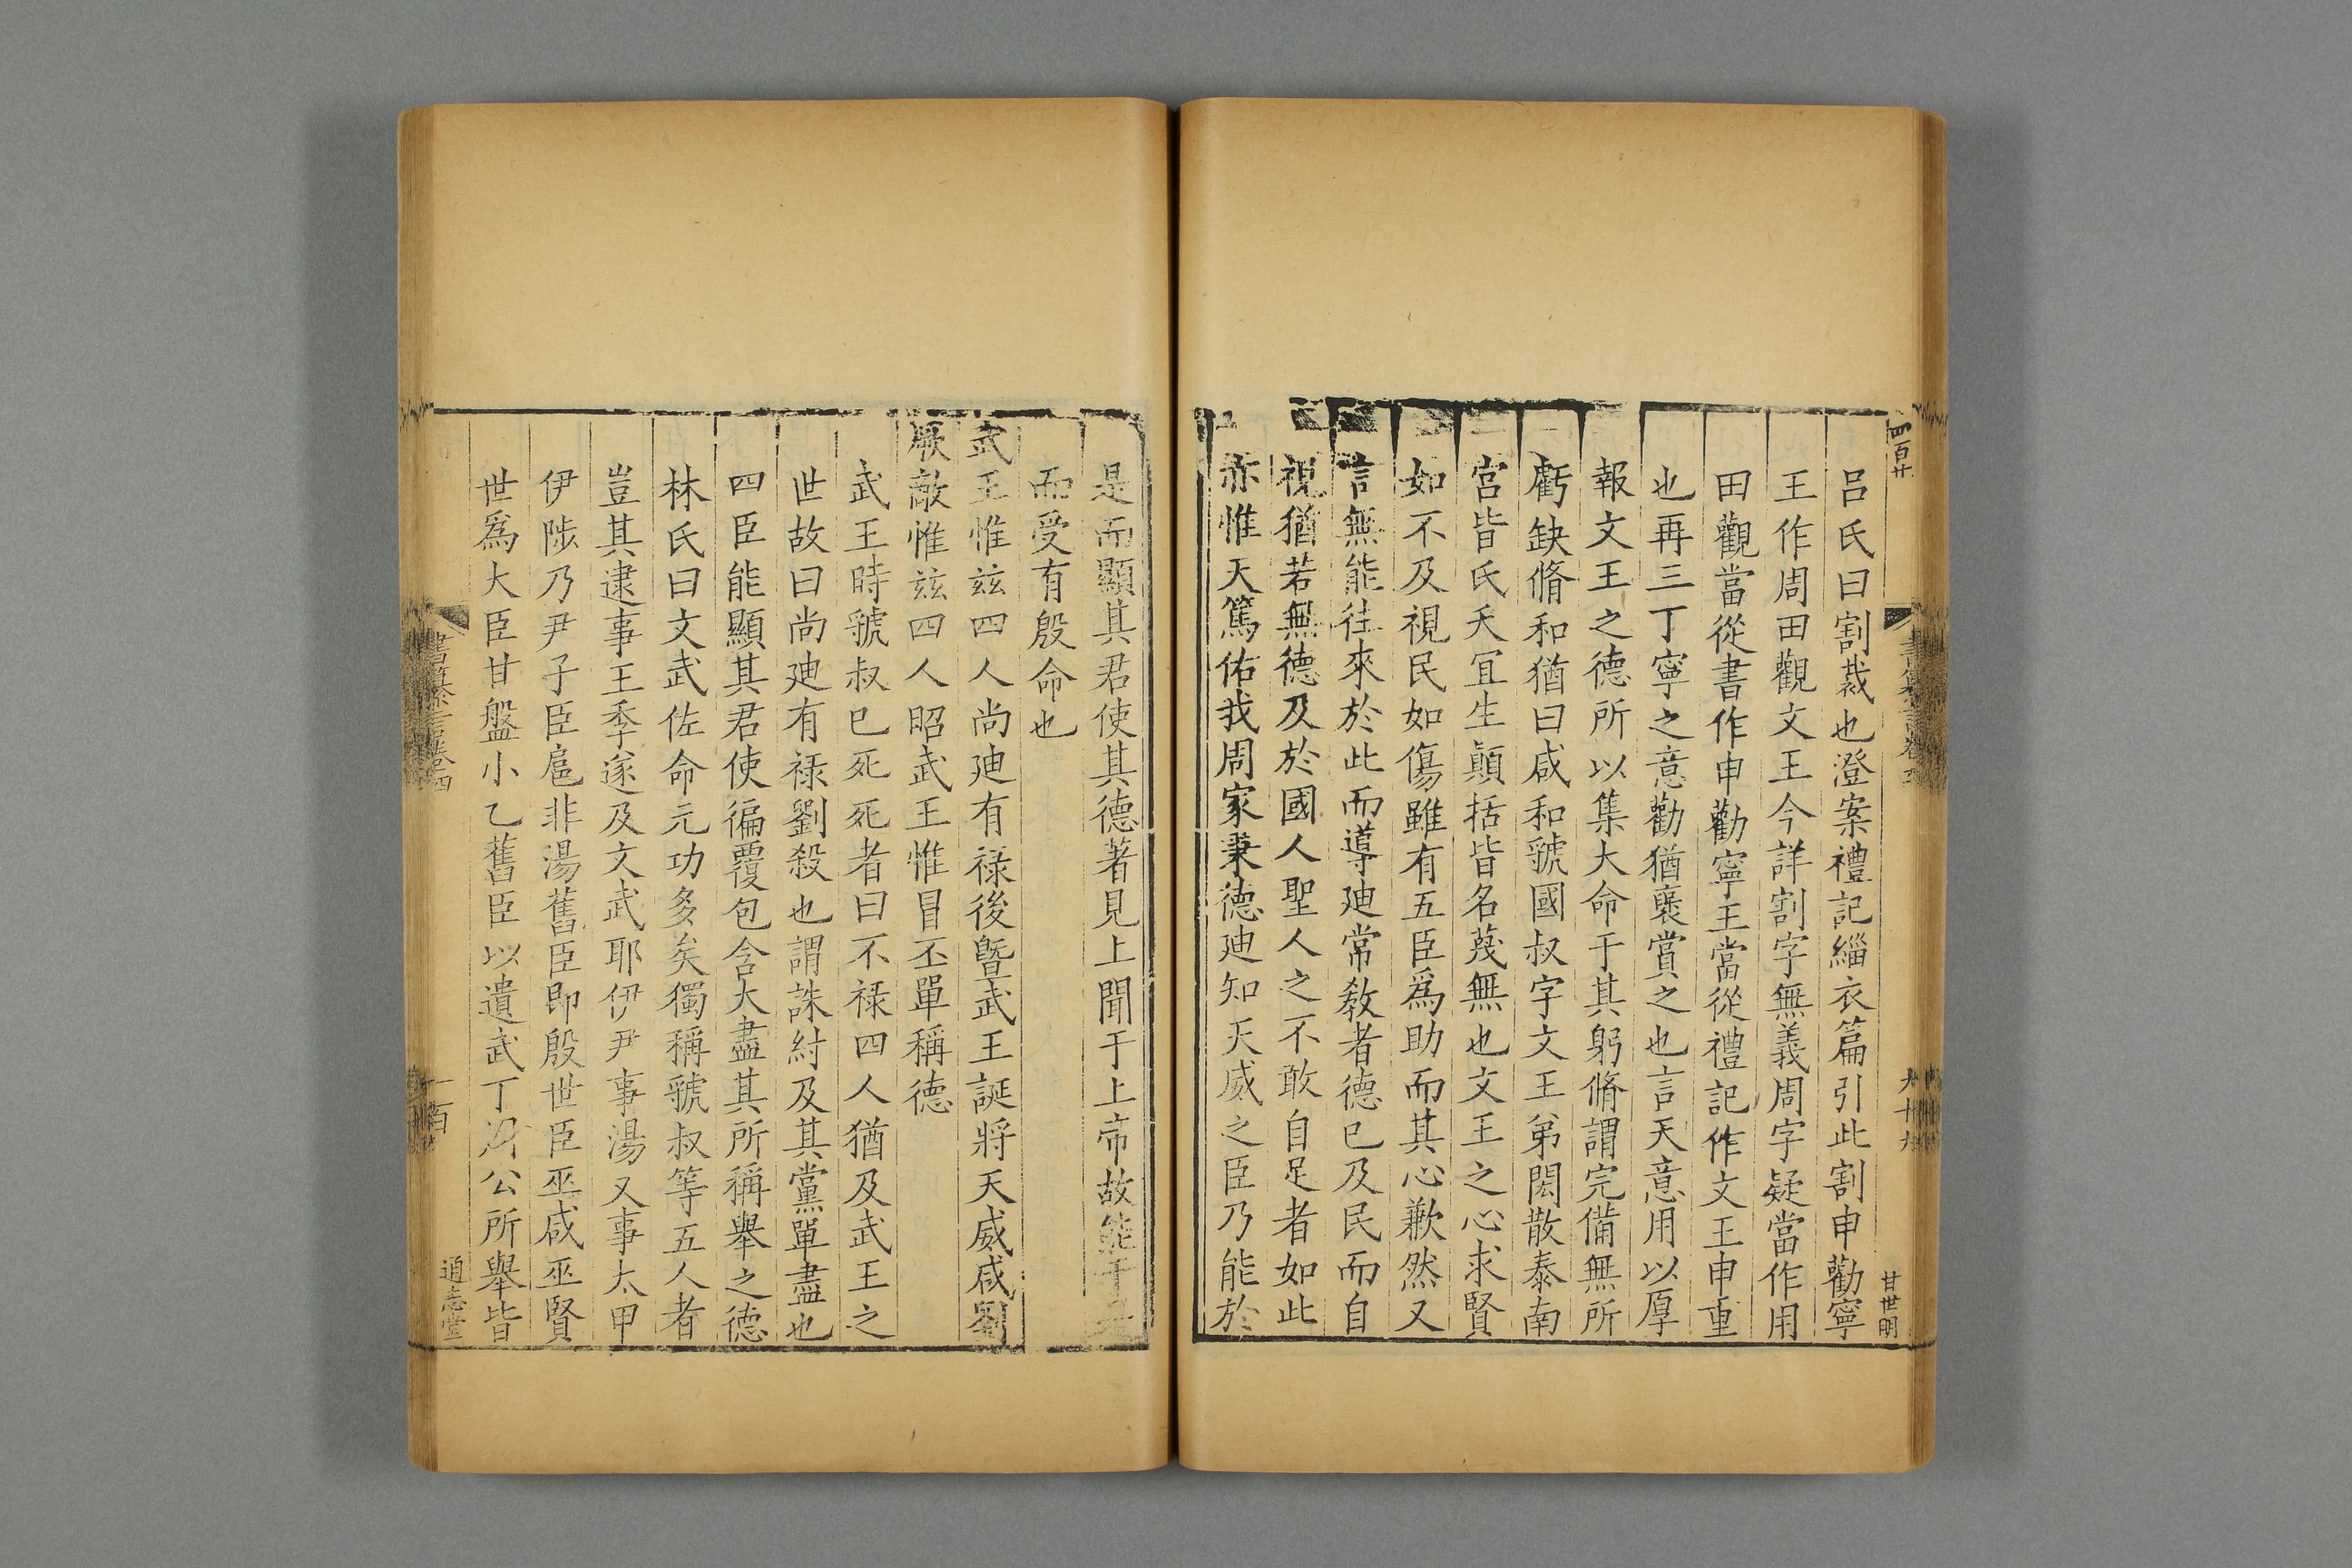 四百廿
甘世明
呂氏曰割裁也澄案禮記緇衣篇引此割申勸寧
王作周田觀文王今詳割字無義周字疑當作用
田觀當從書作申勸寧王當從禮記作文王申重
也再三丁寧之意勸猶襃賞之也言天意用以厚
報文王之德所以集大命于其躬脩謂完備無所
虧缺脩和猶曰咸和虢國叔字文王弟閎散泰南
宮皆氏夭宜生顛括皆名蔑無也文王之心求賢
如不及視民如傷雖有五臣爲助而其心歉然又
言無能往來於此而導迪常教者德已及民而自
視猶若無德及於國人聖人之不敢自足者如此
亦惟天篤佑我周家秉德迪知天威之臣乃能於
是而顯其君使其德著見上聞于上帝故能于
而受有殷命也
武王惟兹四人尚迪有祿後曁武王誕將天威咸劉
厥敵惟兹四人昭武王惟冒丕單稱德
武王時虢叔已死死者曰不禄四人猶及武王之
世故曰尚迪有禄劉殺也謂誅紂及其黨單盡也
四臣能顯其君使徧覆包含大盡其所稱舉之德
林氏曰文武佐命元功多矣獨稱虢叔等五人者
豈其逮事王季遂及文武耶伊尹事湯又事太甲
伊陟乃尹子臣扈非湯舊臣即殷世臣巫咸巫賢
世爲大臣甘盤小乙舊臣以遺武丁周公所舉皆
通志堂